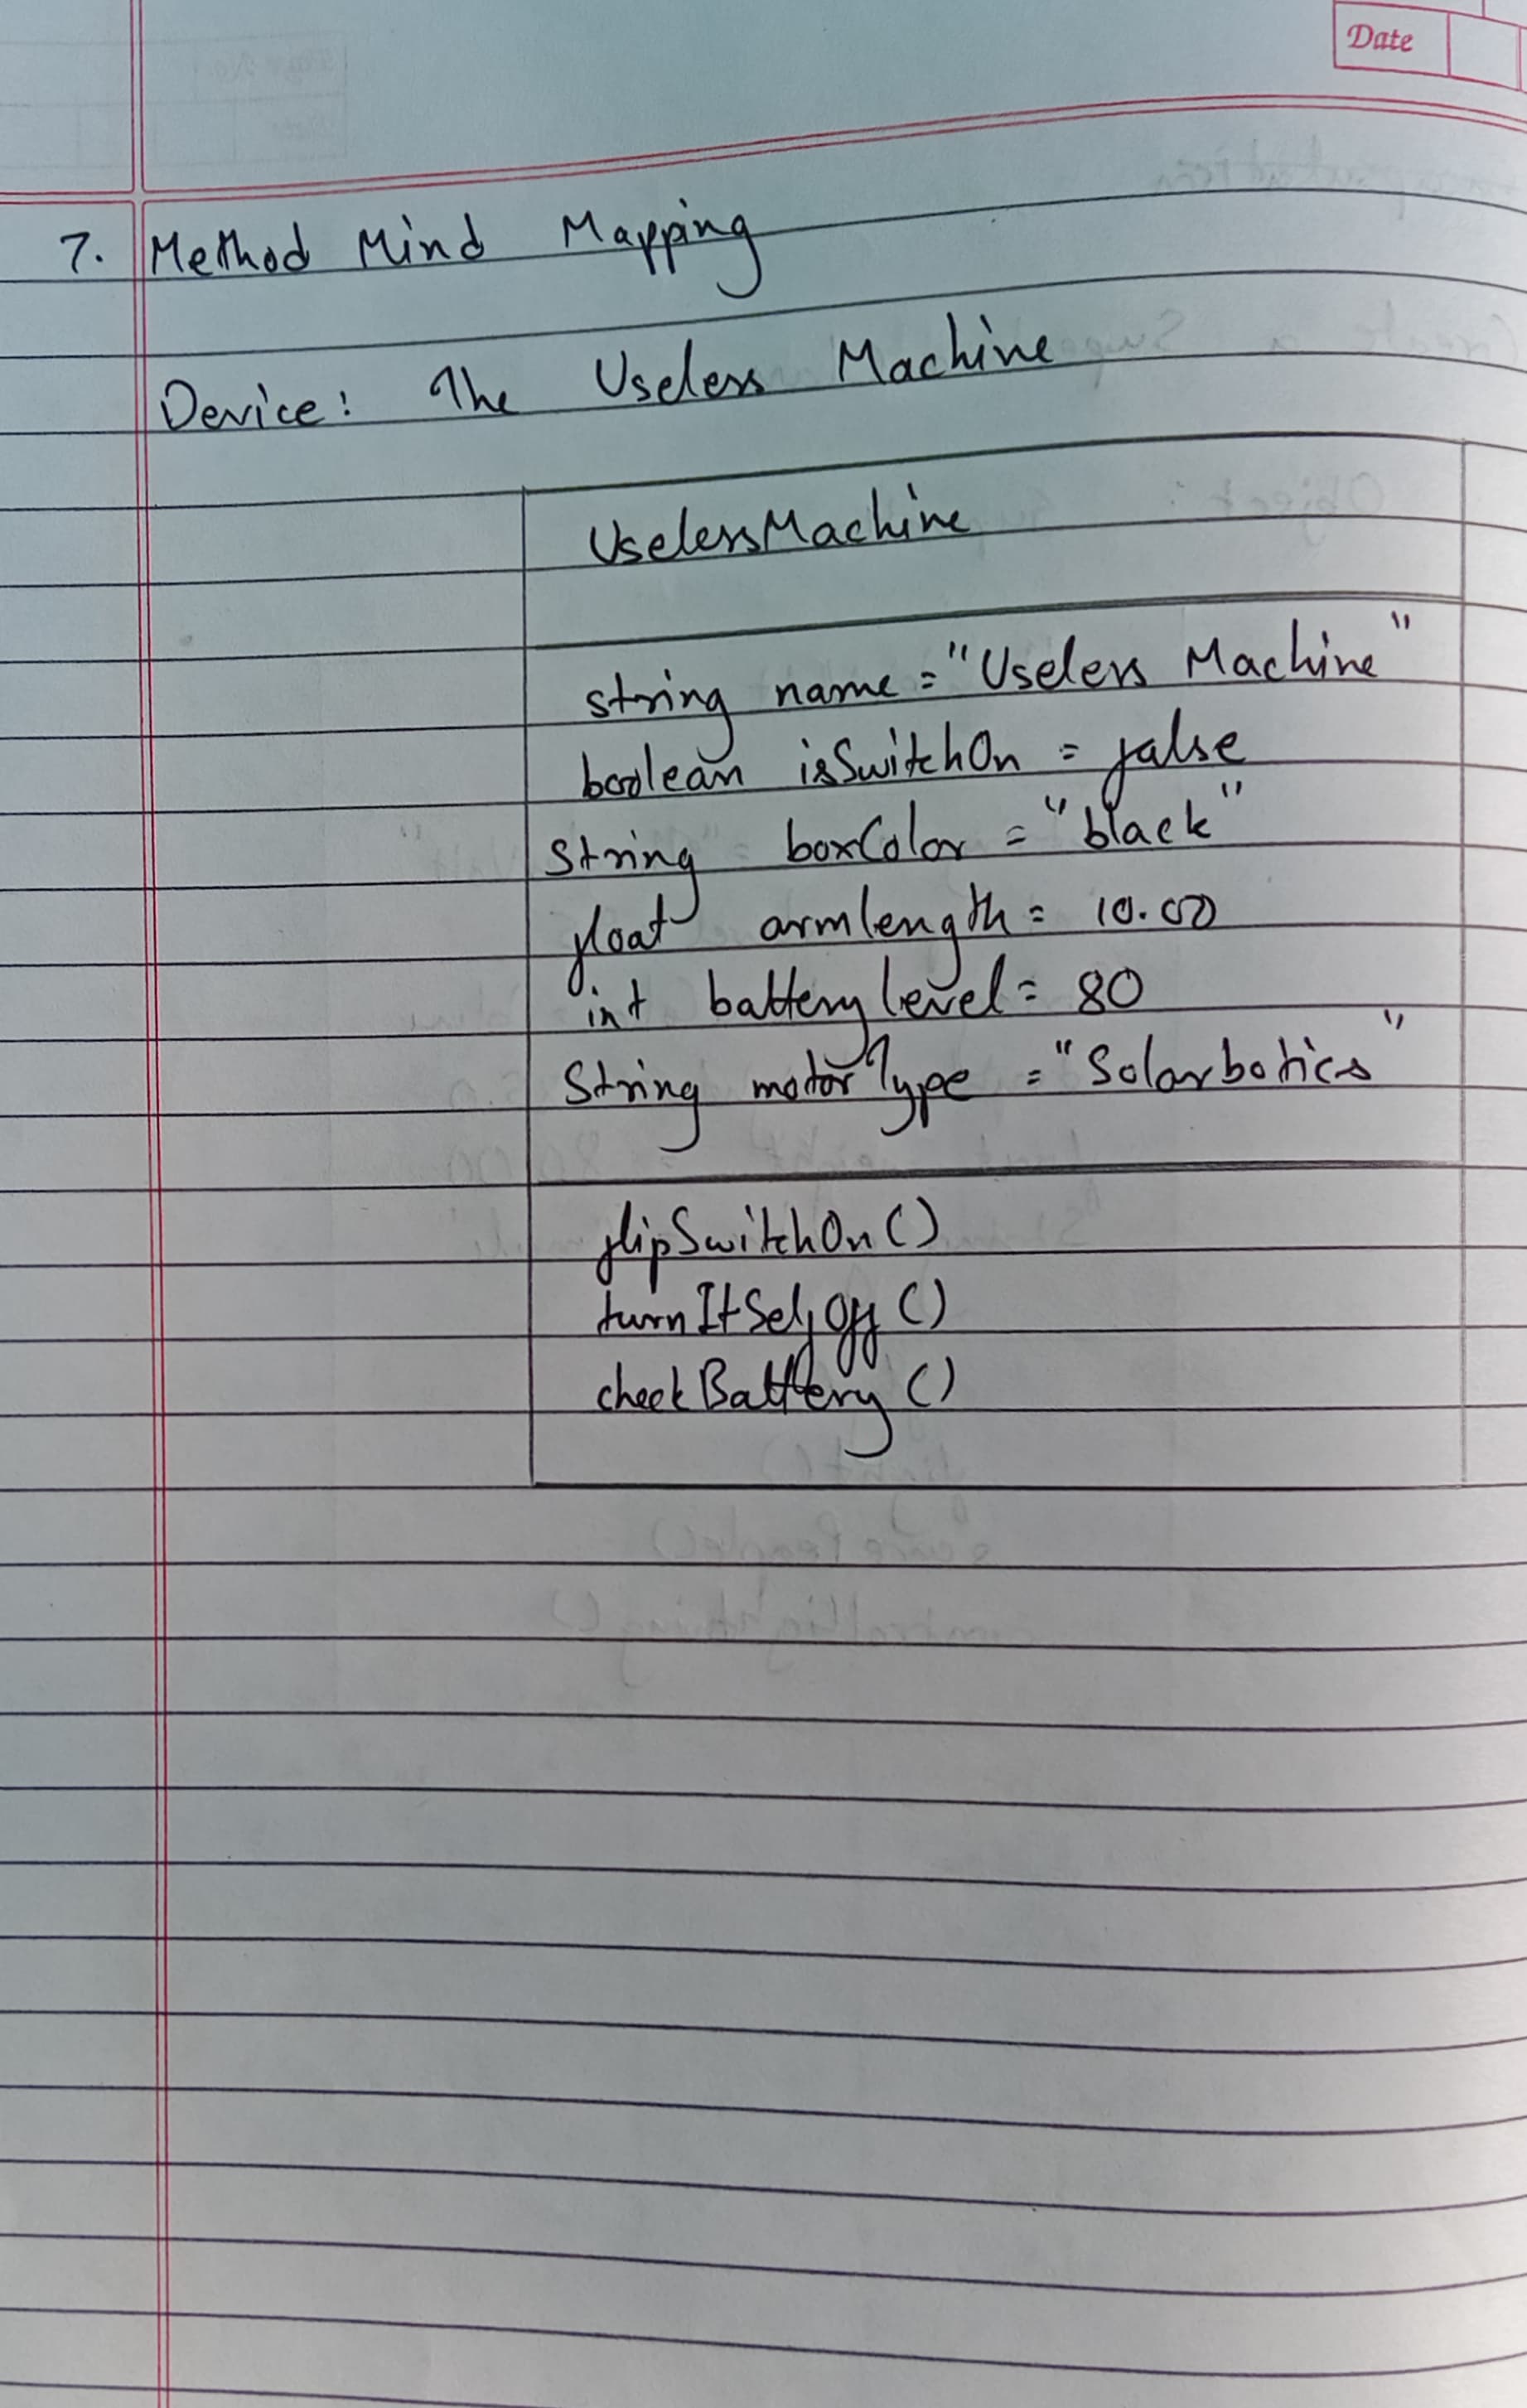 Date
7. Method Mind Mapping
Device: The Useless Machine
UselessMachine
string name = "Useless Machine"
boolean isSwitchOn = false
String boxColor = "black"
float armlength = 10.00
int batterylevel = 80
String motorType = "Solarbotics"
flipSwitchOn()
turnItSelfOff()
checkBattery()